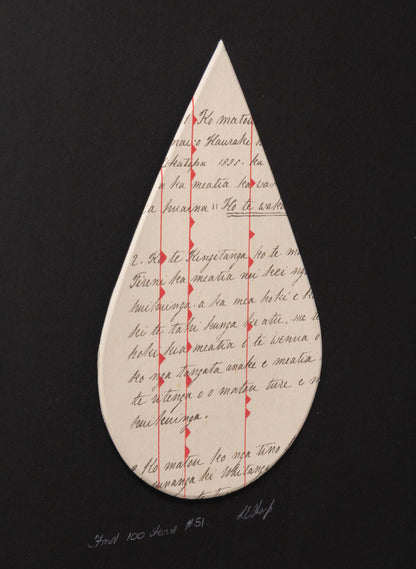 1. Ko matou
Hauraki
1835. ka
a ka meatia ka wa
a huaina " Ko te waka
2. Ko te Kingitanga ko te m
Tireni ka meatia nei kei ng
huihuinga. a ka mea hoki e k
ki te tahi hunga ke atu, me te
hoki kia meatia i te wenua o
ko nga tangata anake e meatia
te ritenga o o matou ture e m
huihuinga.
3 Ko matou ko nga tino
runanga ki Waitangi
First 100 Years #51.